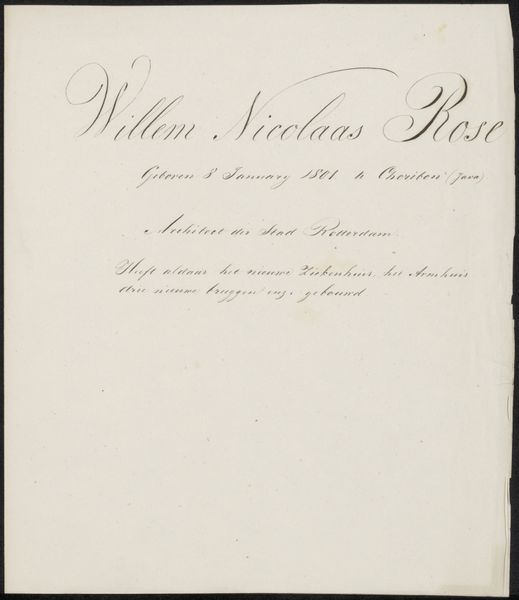 Willem Nicolaas Rose
Geboren 8 January 1801 te Cheribon (Java)
Architect der Stad Rotterdam
Heeft aldaar het nieuwe Ziekenhuis, het Armhuis
drie nieuwe bruggen enz. gebouwd